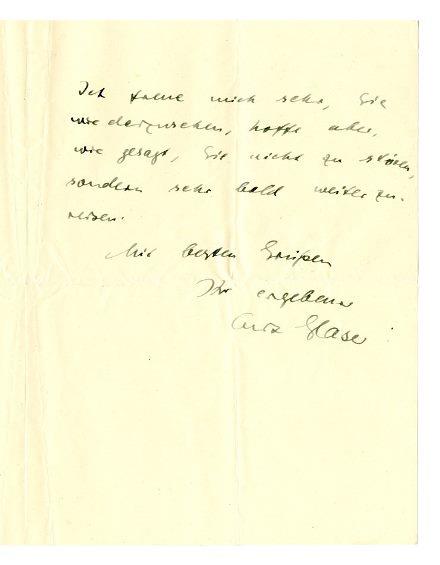 Ich freue mich sehr, Sie
wiederzusehen, hoffe aber,
wie gesagt, Sie nicht zu stören,
sondern sehr bald weiterzu-
reisen.
Mit besten Grüßen
Ihr ergebener
Curt Glaser